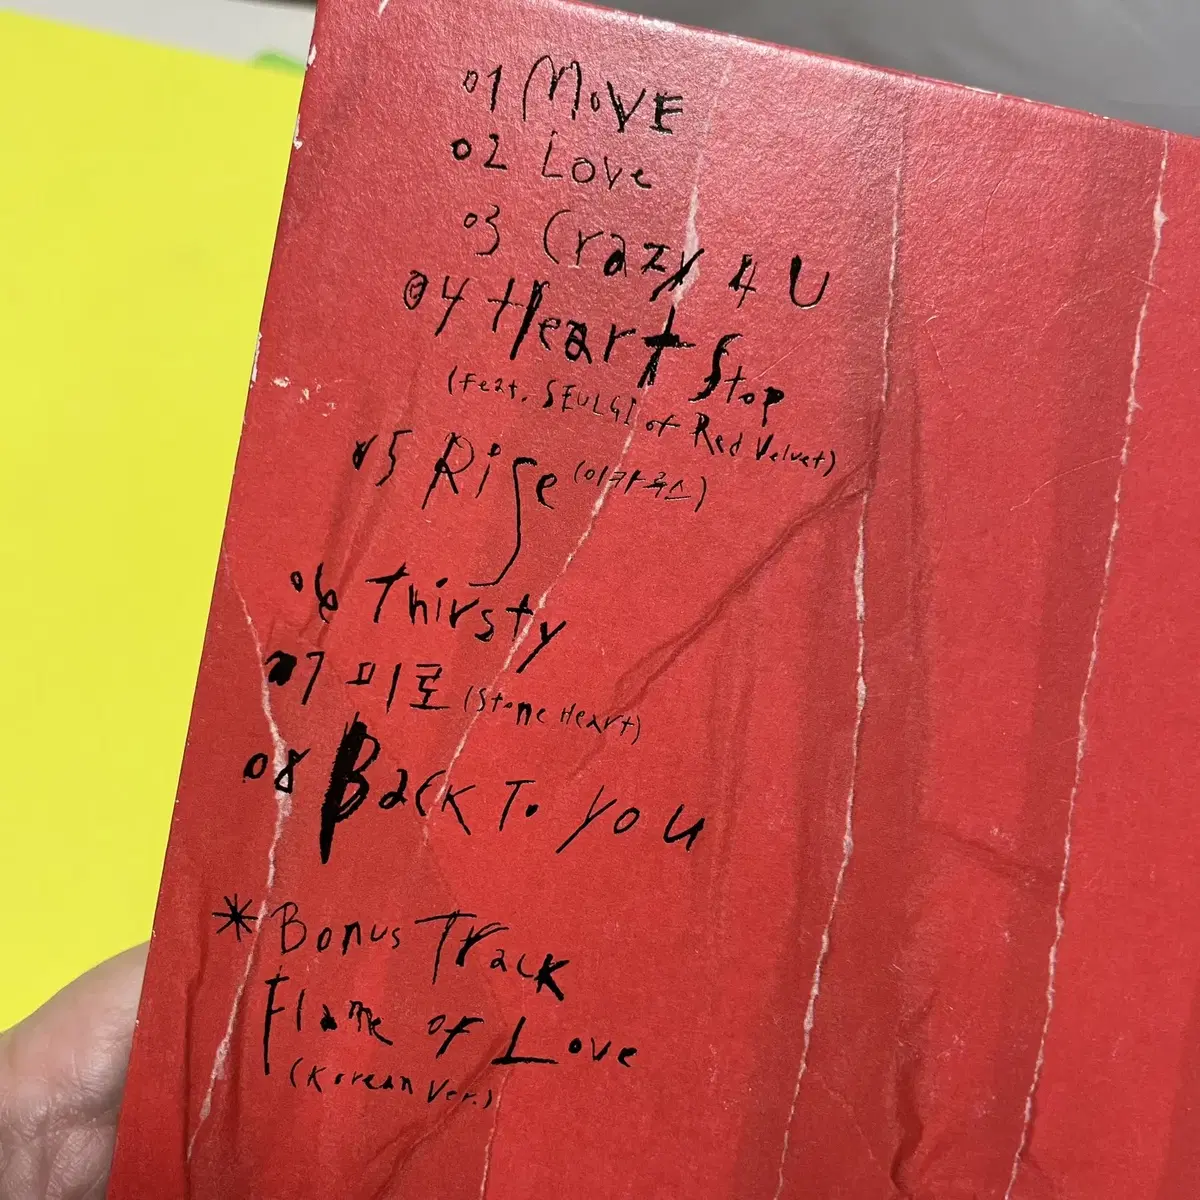 01 MOVE
02 Love
03 Crazy 4 U
04 Heart Stop
(Feat. SEULGI of Red Velvet)
05 Rise (이카루스)
06 Thirsty
07 미로 (Stone Heart)
08 Back To You
* Bonus Track
Flame of Love
(Korean Ver.)